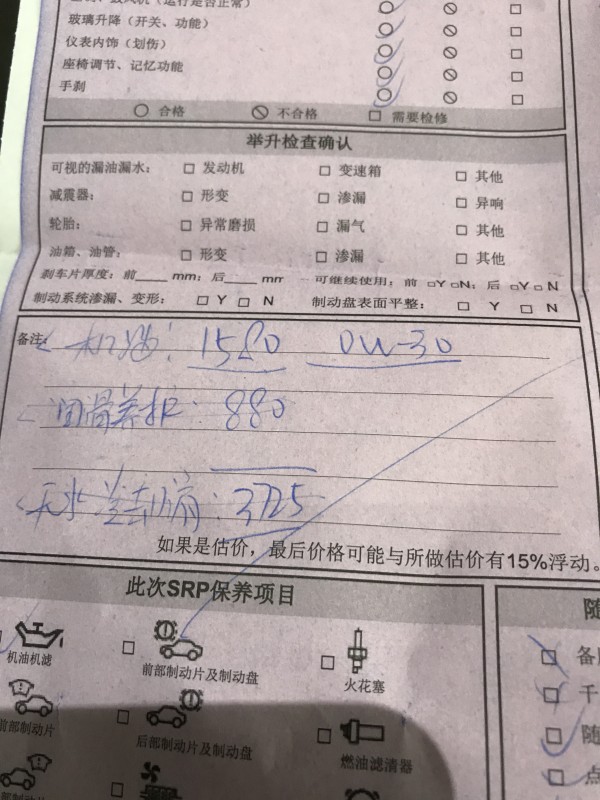 玻璃升降（开关、功能）
仪表内饰（划伤）
座椅调节、记忆功能
手刹
合格 不合格 需要检修
举升检查确认
可视的漏油漏水： 发动机 变速箱 其他
减震器： 形变 渗漏 异响
轮胎： 异常磨损 漏气 其他
油箱、油管： 形变 渗漏 其他
刹车片厚度：前 mm；后 mm 可继续使用：前 Y N；后 Y N
制动系统渗漏、变形： Y N 制动盘表面平整： Y N
备注： 机油：1580 0W-30
润滑养护：880
3725
如果是估价，最后价格可能与所做估价有15%浮动。
此次SRP保养项目
机油机滤 前部制动片及制动盘 火花塞
前部制动片 后部制动片及制动盘 燃油滤清器